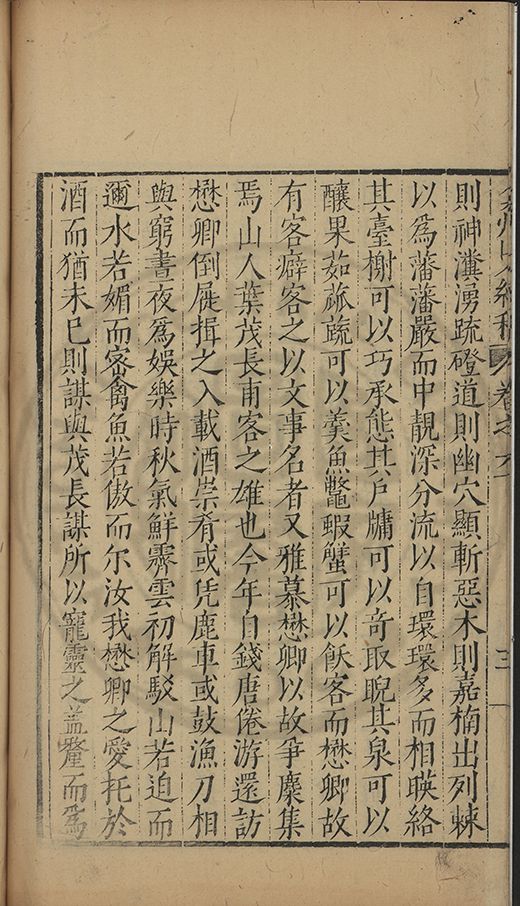 卷之
三
則神瀵湧疏磴道則幽穴顯斬惡木則嘉楠出列棘
以爲藩藩嚴而中靚深分流以自環環多而相暎絡
其臺榭可以巧承態其戶牗可以奇取睨其泉可以
釀果茹蓏蔬可以羹魚鼈蝦蟹可以飫客而懋卿故
有客癖客之以文事名者又雅慕懋卿以故爭麇集
焉山人葉茂長甫客之雄也今年自錢唐倦游還訪
懋卿倒屣揖之入載酒崇肴或凭鹿車或鼓漁刀相
與窮晝夜爲娛樂時秋氣鮮霽雲初解駁山若迫而
邇水若媚而宻禽魚若傲而尔汝我懋卿之愛托於
酒而猶未已則謀與茂長謀所以寵靈之盖釐而爲